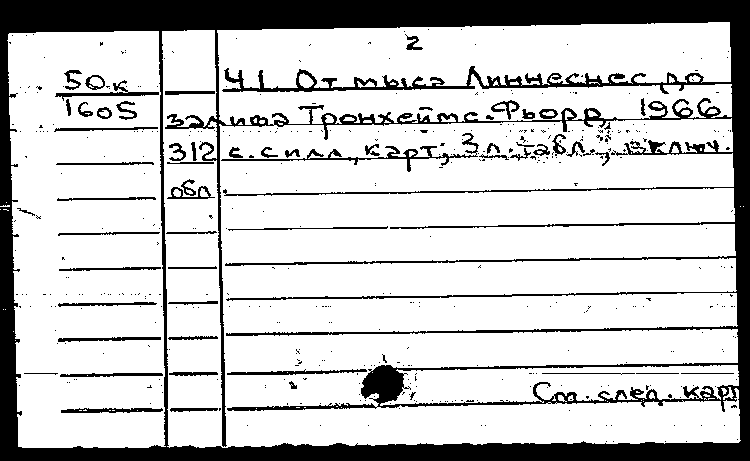 2
50к Ч1. От мыса Линнеснес до
1605 залива Тронхеймс-Фьорд. 1966.
312 с. с илл., карт; 3 л. табл., включ.
обл.
См. след. карт